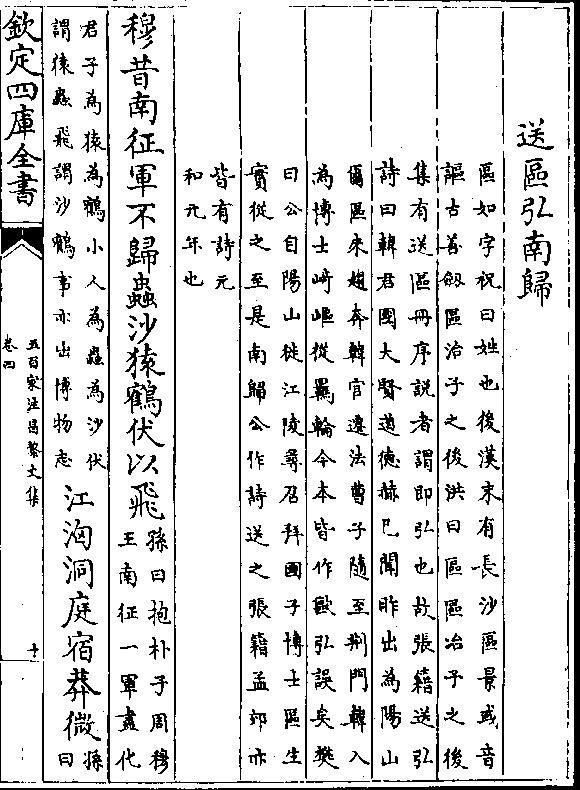 送區弘南歸
區如字祝曰姓也後漢末有長沙區景或音
謳古善劔區治子之後洪曰區區冶子之後
集有送區冊序説者謂即弘也故張籍送弘
詩曰韓君國大賢道德赫已聞昨出為陽山
爾區來趨奔韓官遷法曹子隨至荆門韓入
為博士﨑嶇從羈輪今本皆作歐弘誤矣樊
曰公自陽山徙江陵尋召拜國子博士區生
實從之至是南歸公作詩送之張籍孟郊亦
皆有詩元
和元年也
穆昔南征軍不歸蟲沙猿鶴伏以飛
孫曰抱朴子周穆
王南征一軍盡化
君子為猿為鶴小人為蟲為沙伏
謂猿蟲飛謂沙鶴事亦出博物志
江洶洞庭宿莽微
孫曰
欽定四庫全書
五百家注昌黎文集
卷四
十